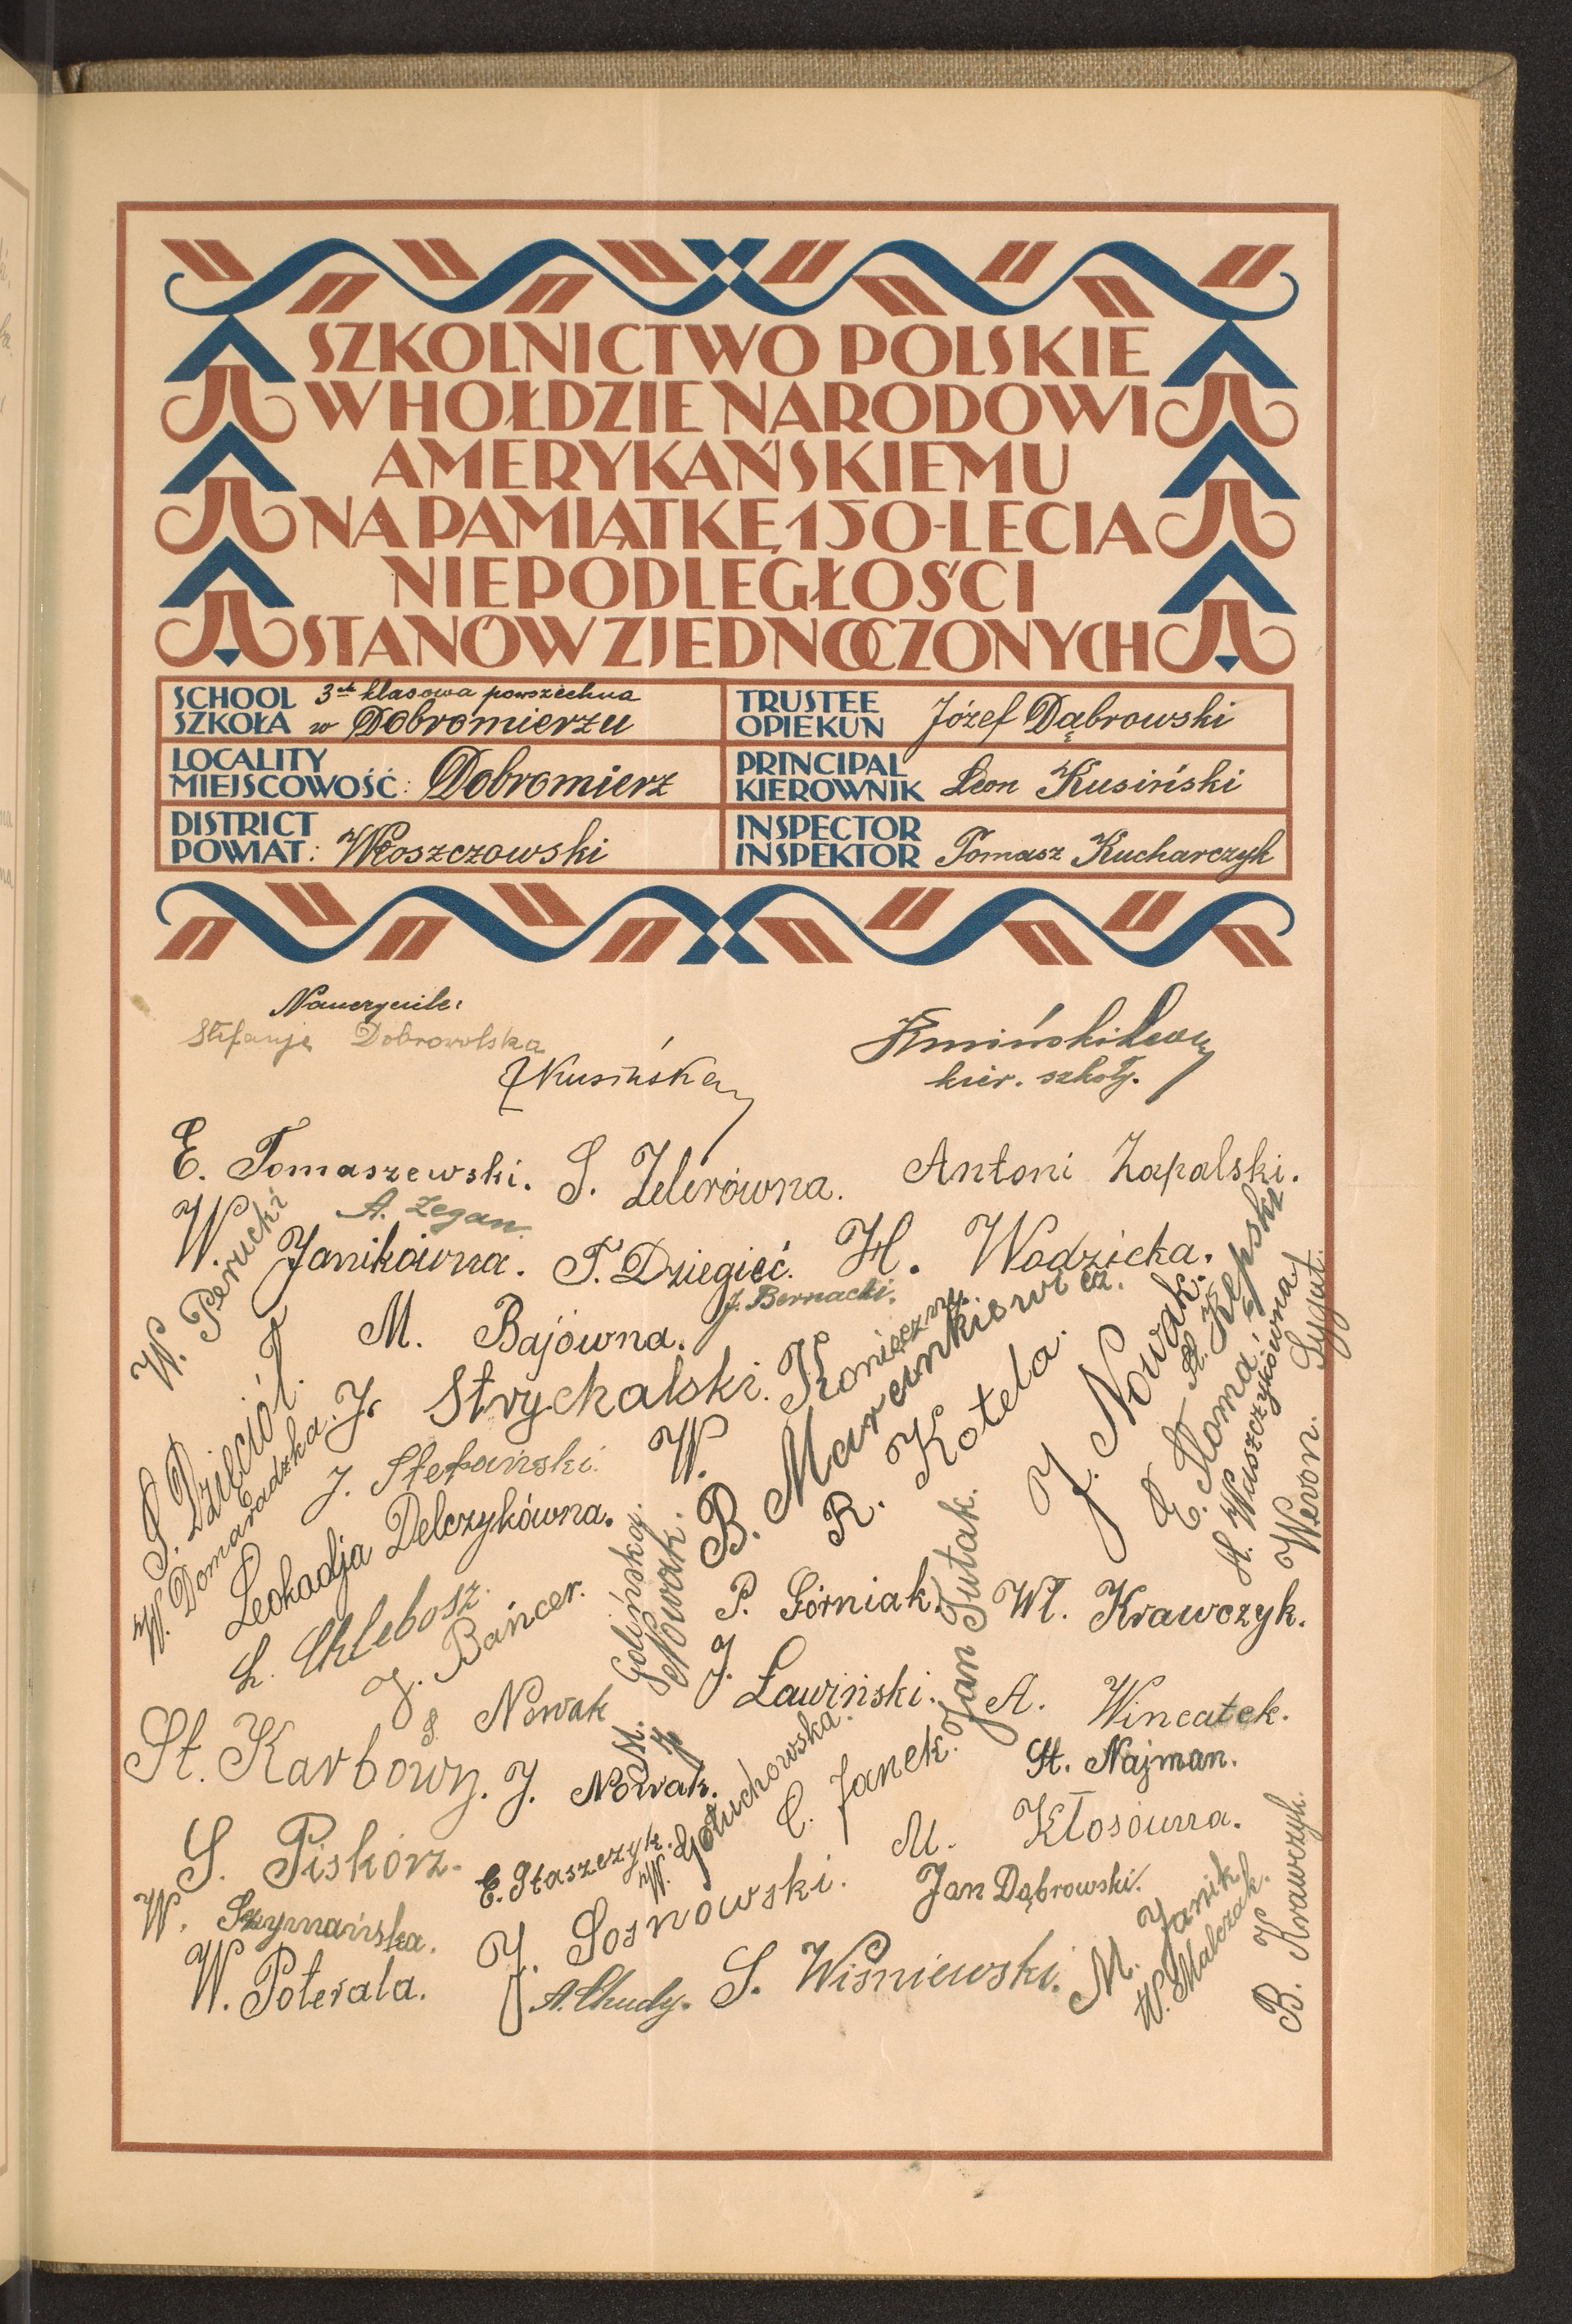 SZKOLNICTWO POLSKIE
W HOŁDZIE NARODOWI
AMERYKAŃSKIEMU
NA PAMIĄTKĘ 150-LECIA
NIEPODLEGŁOŚCI
STANÓW ZJEDNOCZONYCH
SCHOOL
SZKOŁA
3ch klasowa powszechna
w Dobromierzu
TRUSTEE
OPIEKUN
Józef Dąbrowski
LOCALITY
MIEJSCOWOŚĆ: Dobromierz
PRINCIPAL
KIEROWNIK Leon Kusiński
DISTRICT
POWIAT: Włoszczowski
INSPECTOR
INSPEKTOR Tomasz Kucharczyk
Nauczyciele:
Stefanja Dobrowolska
Kusińska
Kusiński Leon
kier. szkoły.
E. Tomaszewski.
S. Zelerówna.
Antoni Zapalski.
A. Zegan.
W. Janikówna.
F. Dziegieć.
H. Wodzicka.
W. Perucki
J. Bernacki.
M. Bajówna.
J. Strychalski.
W. Konieczny.
B. Marcinkiewicz.
R. Kotela.
J. Nowak.
St. Kępski
E. Słoma.
H. Waszczykówna
Weron. Sygut.
S. Dzięciół.
W. Domaradzka.
J. Stefański.
Leokadja Delczykówna.
L. Chlebosz.
J. Bańcer.
M. Golińska.
J. Nowak.
P. Górniak.
Jan Tutak.
Wł. Krawczyk.
J. Ławiński.
S. Nowak
A. Wincatek.
St. Karbowy.
J. Nowak.
St. Najman.
W. Gołuchowska.
C. Janek.
M. Kłosówna.
S. Piskorz.
E. Staszczyk.
W. Szymańska.
J. Sosnowski.
Jan Dąbrowski.
M. Janik
W. Malczak.
B. Krawczyk.
W. Poterała.
A. Chudy.
S. Wiśniewski.